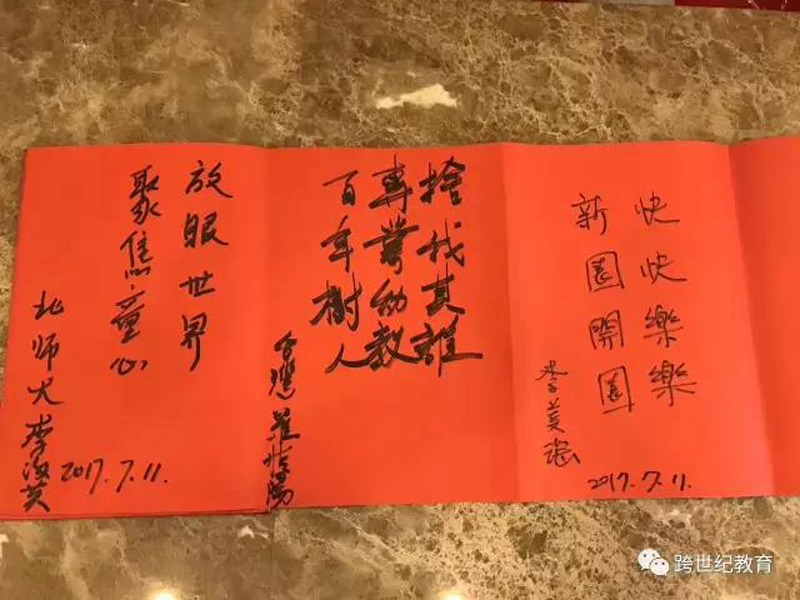 快快樂樂
新園開園
李美
2017.7.11.
捨我其誰
專業幼教
百年樹人
台灣
放眼世界
聚焦童心
北师大李
2017.7.11.
跨世纪教育